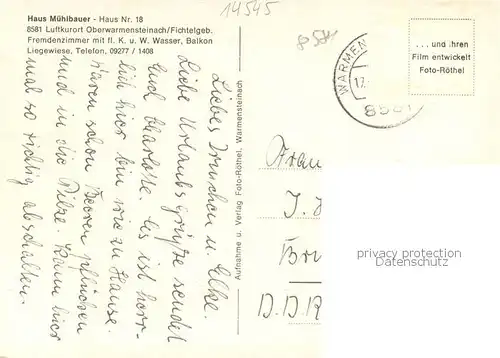 14545
Haus Mühlbauer - Haus Nr. 18
8581 Luftkurort Oberwarmensteinach/Fichtelgeb.
Fremdenzimmer mit fl. K. u. W. Wasser, Balkon
Liegewiese, Telefon, 09277 / 1408
WARMEN
17.
8581
... und Ihren
Film entwickelt
Foto-Röthel
Liebes Trudchen u. Elke.
Liebe Urlaubsgrüße sendet
Euch Charlotte. Es ist herr-
lich hier bin wie zu Hause.
Waren schon Beeren pflücken
und in die Pilze. Kann hier
mal so richtig abschalten.
Aufnahme u. Verlag Foto-Röthel, Warmensteinach
Frau
D.D.R
privacy protection
Datenschutz